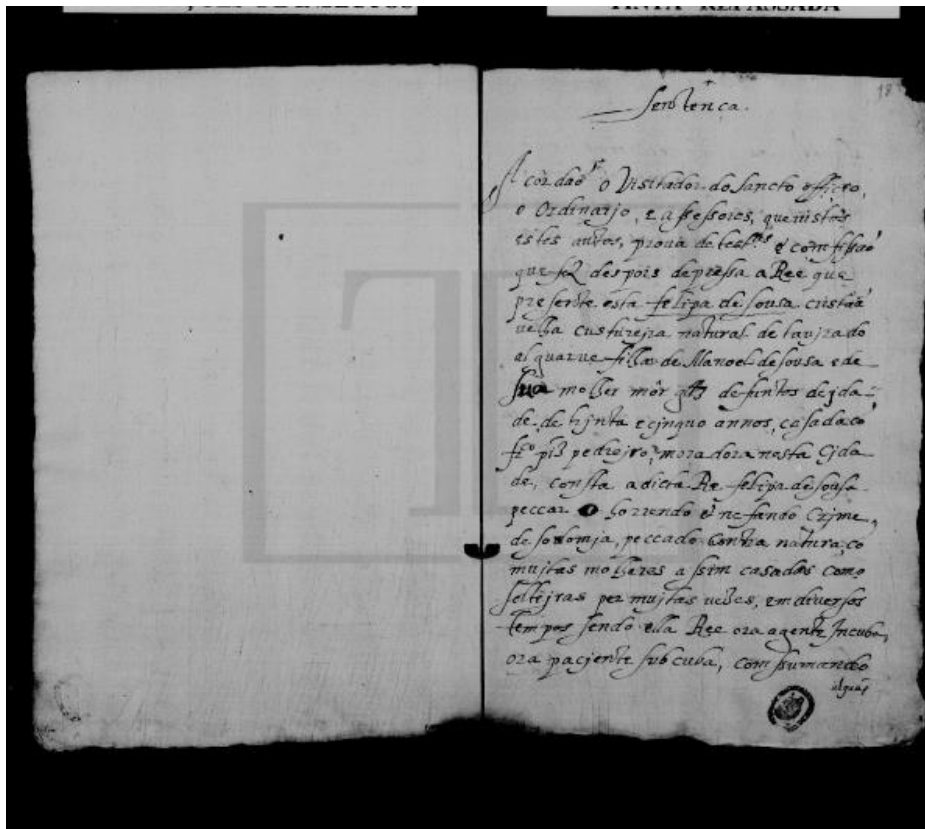 TINTA REPASSADA
18
Sentença.
Acordão o Visitador do Sancto officio,
o Ordinario, e assessores, que vistos
estes autos, prova de test.as e comfissão
que fez despois de pressa a Ree que
presente esta felipa de sousa cristaã
velha custureyra natural de tavyra do
alguarve filha de Manoel de sousa e de
sua molher mor defuntos de jda-
de de trjnta e cinquo annos, casada cõ
fr.co pĩz pedrejro, moradora nesta Cjda
de, consta a dicta Ree felipa de sousa
peccar o horrendo e nefando Crjme,
de sodomja, peccado contra natura, cõ
mujtas molheres assim casadas como
soltejras per mujtas vezes, em diversos
tempos sendo ella Ree ora agente Incuba,
ora paciente subcuba, comssumando
alguãs